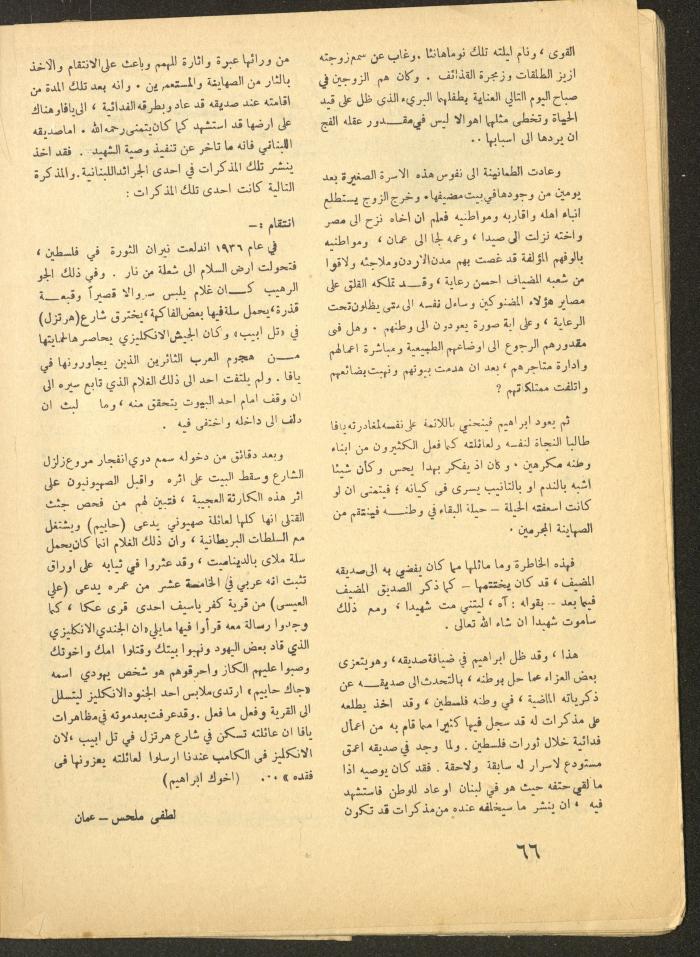 القوى ، ونام ليلته تلك نوما هانئا . وغاب عن سمع زوجته
ازيز الطلقات وزمجرة القذائف . وكان هم الزوجين في
صباح اليوم التالي العناية بطفلهما البريء الذى ظل على قيد
الحياة وتخطى مثلهما اهوالا ليس في مقدور عقله الفج
ان يردها الى اسبابها ..
وعادت الطمأنينة الى نفوس هذه الاسرة الصغيرة بعد
يومين من وجودها في بيت مضيفها، وخرج الزوج يستطلع
انباء اهله واقاربه ومواطنيه فعلم ان اخاه نزح الى مصر
واخته نزلت الى صيدا ، وعمه لجا الى عمان ، ومواطنيه
بالوفهم المؤلفة قد غصت بهم مدن الاردن وملاجئه ولاقوا
من شعبه المضياف احسن رعاية ، وقد تملكه القلق على
مصاير هؤلاء المضنوكين وساءل نفسه الى متى يظلون تحت
الرعاية ، وعلى اية صورة يعودون الى وطنهم . وهل فى
مقدورهم الرجوع الى اوضاعهم الطبيعية ومباشرة اعمالهم
وادارة متاجرهم ، بعد ان هدمت بيوتهم ونهبت بضائعهم
واتلفت ممتلكاتهم ؟
ثم يعود ابراهيم فينحني باللائمة على نفسه لمغادرته يافا
طالبا النجاة لنفسه ولعائلته كما فعل الكثيرون من ابناء
وطنه مكرهين . وكان اذ يفكر بهذا يحس وكأن شيئا
اشبه بالندم او بالتانيب يسرى فى كيانه ؛ فيتمنى ان لو
كانت اسعفته الحيلة – حيلة البقاء في وطنه فينتقم من
الصهاينة المجرمين .
فهذه الخاطرة وما ماثلها مما كان يفضي به الى صديقه
المضيف ، قد كان يختتمها – كما ذكر الصديق المضيف
فيما بعد – بقوله : آه ، ليتني مت شهيدا ، ومع ذلك
ساموت شهيدا ان شاء الله تعالى .
هذا ، وقد ظل ابراهيم في ضيافة صديقه ، وهو يتعزى
بعض العزاء عما حل بوطنه ، بالتحدث الى صديقه عن
ذكرياته الماضية ، في وطنه فلسطين ، وقد اخذ يطلعه
على مذكرات له قد سجل فيها كثيرا مما قام به من اعمال
فدائية خلال ثورات فلسطين . ولما وجد في صديقه اعمق
مستودع لاسرار له سابقة ولاحقة . فقد كان يوصيه اذا
ما لقي حتفه حيث هو في لبنان او عاد للوطن فاستشهد
فيه ، ان ينشر ما سيخلفه عنده من مذكرات قد تكون
من ورائها عبرة واثارة للهمم وباعث على الانتقام والاخذ
بالثار من الصهاينة والمستعمرين . وانه بعد تلك المدة من
اقامته عند صديقه قد عاد وبطرقه الفدائية ، الى يافا وهناك
على ارضها قد استشهد كما كان يتمنى رحمه الله . اما صديقه
اللبناني فانه ما تاخر عن تنفيذ وصية الشهيد . فقد اخذ
ينشر تلك المذكرات في احدى الجرائد اللبنانية . والمذكرة
التالية كانت احدى تلك المذكرات :
انتقام :–
في عام ١٩٣٦ اندلعت نيران الثورة في فلسطين ،
فتحولت ارض السلام الى شعلة من نار . وفي ذلك الجو
الرهيب كان غلام يلبس سروالا قصيراً وقبعة
قذرة ، يحمل سلة فيها بعض الفاكهة ، يخترق شارع (هرتزل)
في «تل ابيب» وكان الجيش الانكليزي يحاصرها لحمايتها
من هجوم العرب الثائرين الذين يجاورونها في
يافا . ولم يلتفت احد الى ذلك الغلام الذي تابع سيره الى
ان وقف امام احد البيوت يتحقق منه ، وما لبث ان
دلف الى داخله واختفى فيه .
وبعد دقائق من دخوله سمع دوي انفجار مروع زلزل
الشارع وسقط البيت على اثره واقبل الصهيونيون على
اثر هذه الكارثة العجيبة ، فتبين لهم من فحص جثث
القتلى انها كلها لعائلة صهيوني يدعى (حاييم) ويشتغل
مع السلطات البريطانية ، وان ذلك الغلام انما كان يحمل
سلة ملاى بالديناميت ، وقد عثروا في ثيابه على اوراق
تثبت انه عربي في الخامسة عشر من عمره يدعى (علي
العيسى) من قرية كفر ياسيف احدى قرى عكا ، كما
وجدوا رسالة معه قرأوا فيها مايلي «ان الجندي الانكليزي
الذي قاد بعض اليهود ونهبوا بيتك وقتلوا امك واخوتك
وصبوا عليهم الكاز واحرقوهم هو شخص يهودي اسمه
«جاك حاييم» ارتدى ملابس احد الجنود الانكليز ليتسلل
الى القرية وفعل ما فعل . وقد عرفت بعد موته في مظاهرات
يافا ان عائلته تسكن في شارع هرتزل في تل ابيب ، لان
الانكليز فى الكامب عندنا ارسلوا لعائلته يعزونها فى
فقده » ... (اخوك ابراهيم)
لطفى ملحس – عمان
٦٦